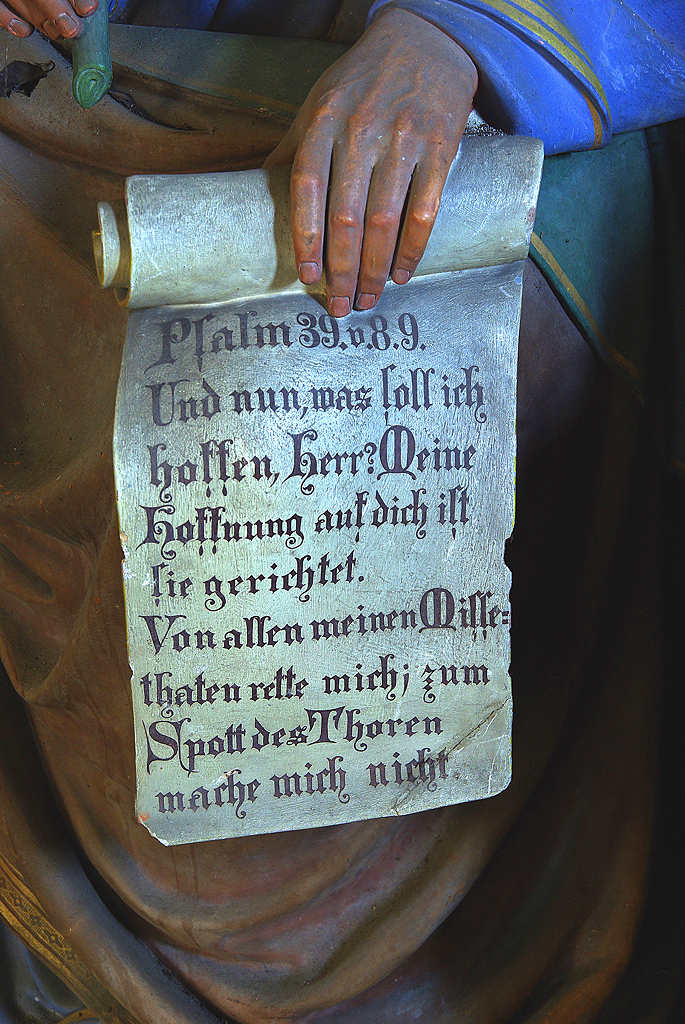 Psalm 39.v.8.9.
Und nun, was soll ich
hoffen, Herr? Meine
Hoffnung auf dich ist
sie gerichtet.
Von allen meinen Misse=
thaten rette mich; zum
Spott des Thoren
mache mich nicht.